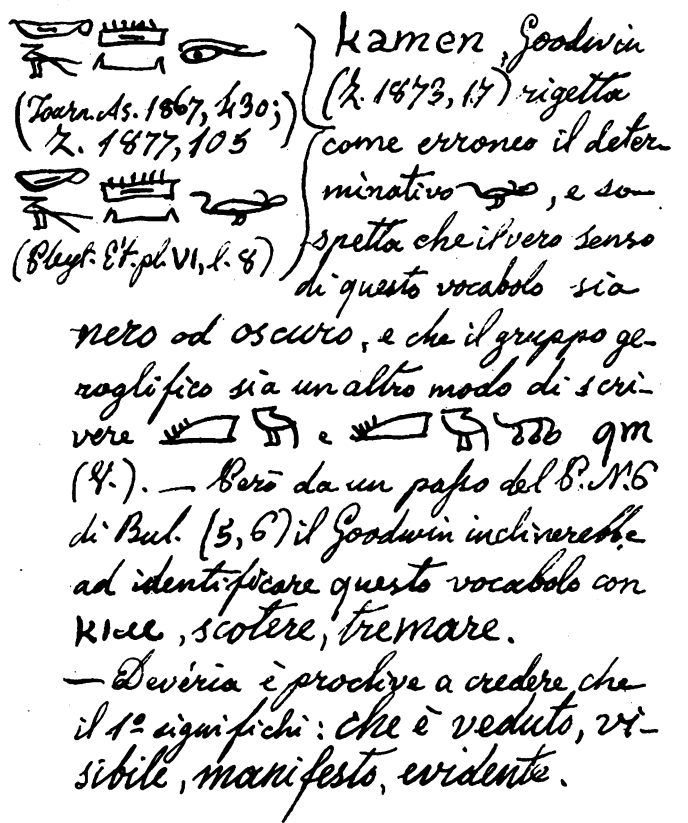 kamen, Goodwin
(Journ. As. 1867, 430;
Z. 1877, 105
(Pleyt. Ét. pl. VI, l. 8)
(Z. 1873, 17) rigetta
come erroneo il deter-
minativo , e so-
spetta che il vero senso
di questo vocabolo sia
nero od oscuro, e che il gruppo ge-
roglifico sia un altro modo di scri-
vere e qm
(V.). — Però da un passo del P. N. 6
di Bul. (5, 6) il Goodwin inclinerebbe
ad identificare questo vocabolo con
ⲕⲓⲙ, scotere, tremare.
— Devéria è proclive a credere che
il 1º significhi: che è veduto, vi-
sibile, manifesto, evidente.